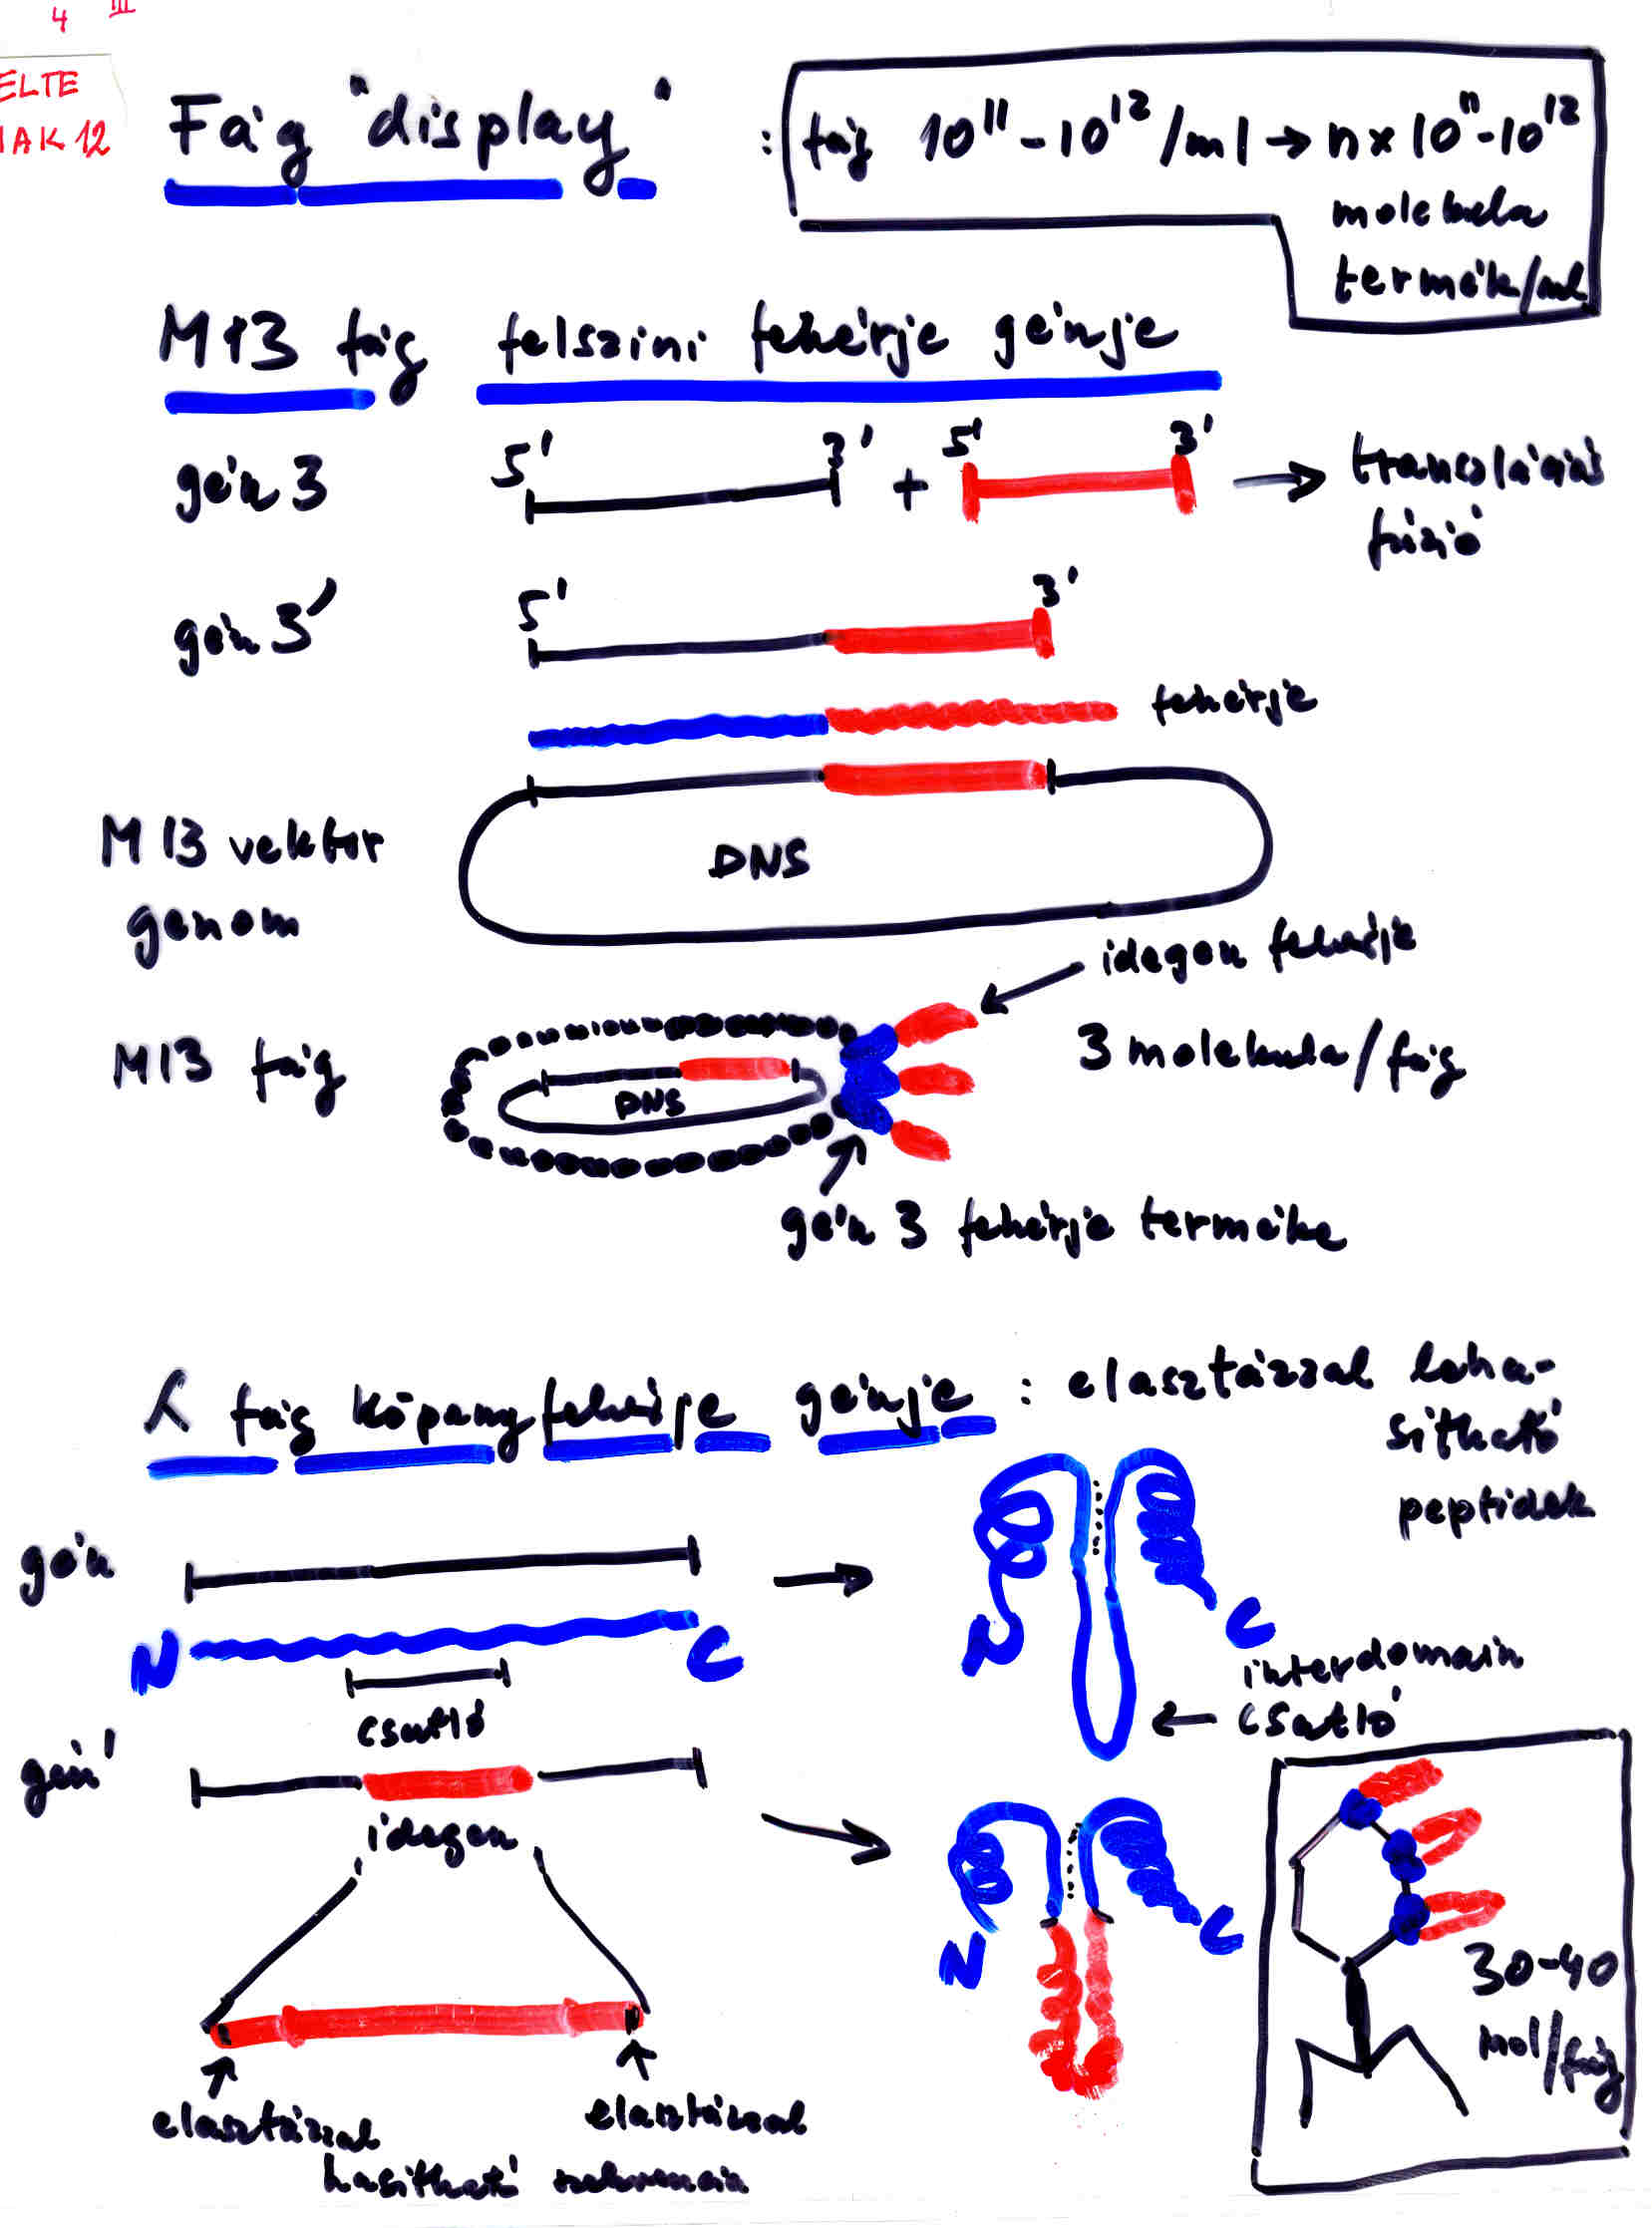 4 III
ELTE
MAK 12
Fág "display" : fág 10¹¹-10¹²/ml → n×10¹¹-10¹²
molekula
termék/ml
M13 fág felszini fehérje génje
gén 3 5' 3' + 5' 3' → transzlációs
fúzió
gén 3' 5' 3'
fehérje
M13 vektor
genom
DNS
idegen fehérje
M13 fág
DNS
3 molekula/fág
gén 3 fehérje terméke
λ fág köpenyfehérje génje : elasztázzal leha-
sitható
peptidek
gén
N C
csatló
N C
interdomain
← csatló
gén'
idegen
N C
30-40
mol/fág
elasztázzal elasztázzal
hasitható szekvencia